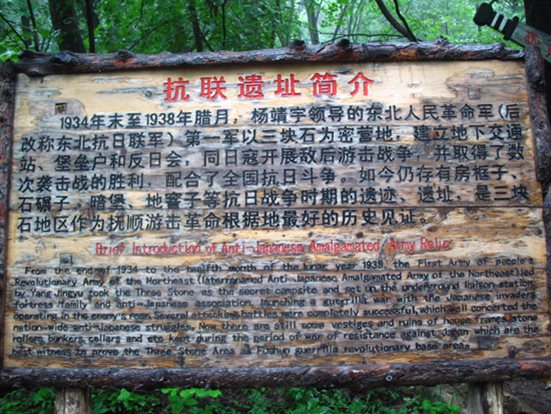 抗联遗址简介
1934年末至1938年腊月，杨靖宇领导的东北人民革命军（后
改称东北抗日联军）第一军以三块石为密营地，建立地下交通
站、堡垒户和反日会，同日寇开展敌后游击战争，并取得了数
次袭击战的胜利，配合了全国抗日斗争。如今仍存有房框子、
石碾子、暗堡、地窨子等抗日战争时期的遗迹、遗址，是三块
石地区作为抚顺游击革命根据地最好的历史见证。
Brief Introduction of Anti-Japanese Amalgamated Army Relic
From the end of 1934 to the twelfth month of the lunar year 1938, the First Army of people's
Revolutionary Army of the Northeast (laterrnamed Anti-Japanese Amalgamated Army of the Northeast)led
by Yang Jingyu took the Three Stone as the secret campsite, set up the underground liaison station,
fortress family and anti-Japanese association, launching a guerrilla war with the Japanese invaders
operating in the enemy's rear. Several attacking battles were completely successful, which well concerted the
nation-wide anti-Japanese struggles. Now there are still some vestiges and ruins of house frames, stone
rollers, bunkers, cellars and etc kept during the period of war of resistance against Japan which are the
best witness to prove the Three Stone Area as Fushun guerrilla revolutionary base area.